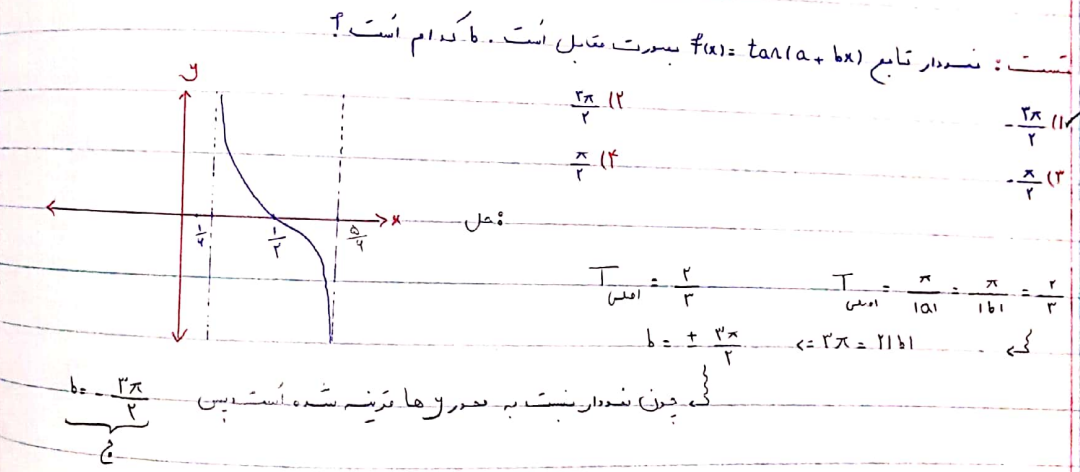 تست: نمودار تابع f(x)= tan(a + bx) بصورت مقابل است. b کدام است؟
۱) -۳π/۲ ۲) ۳π/۲
۳) -π/۲ ۴) π/۲
y
x
۱/۶ ۱/۲ ۵/۶
حل:
T اصلی = π/|a| = π/|b| = ۲/۳ T اصلی = ۲/۳
=> ۳π = ۲|b| => b = ± ۳π/۲
چون نمودار نسبت به محور y ها قرینه شده است پس b = -۳π/۲
ج